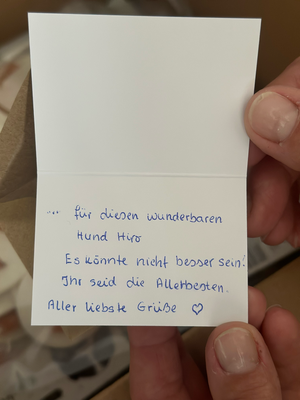 ... für diesen wunderbaren
Hund Hiro
Es könnte nicht besser sein!
Ihr seid die Allerbesten.
Aller liebste Grüße ♡